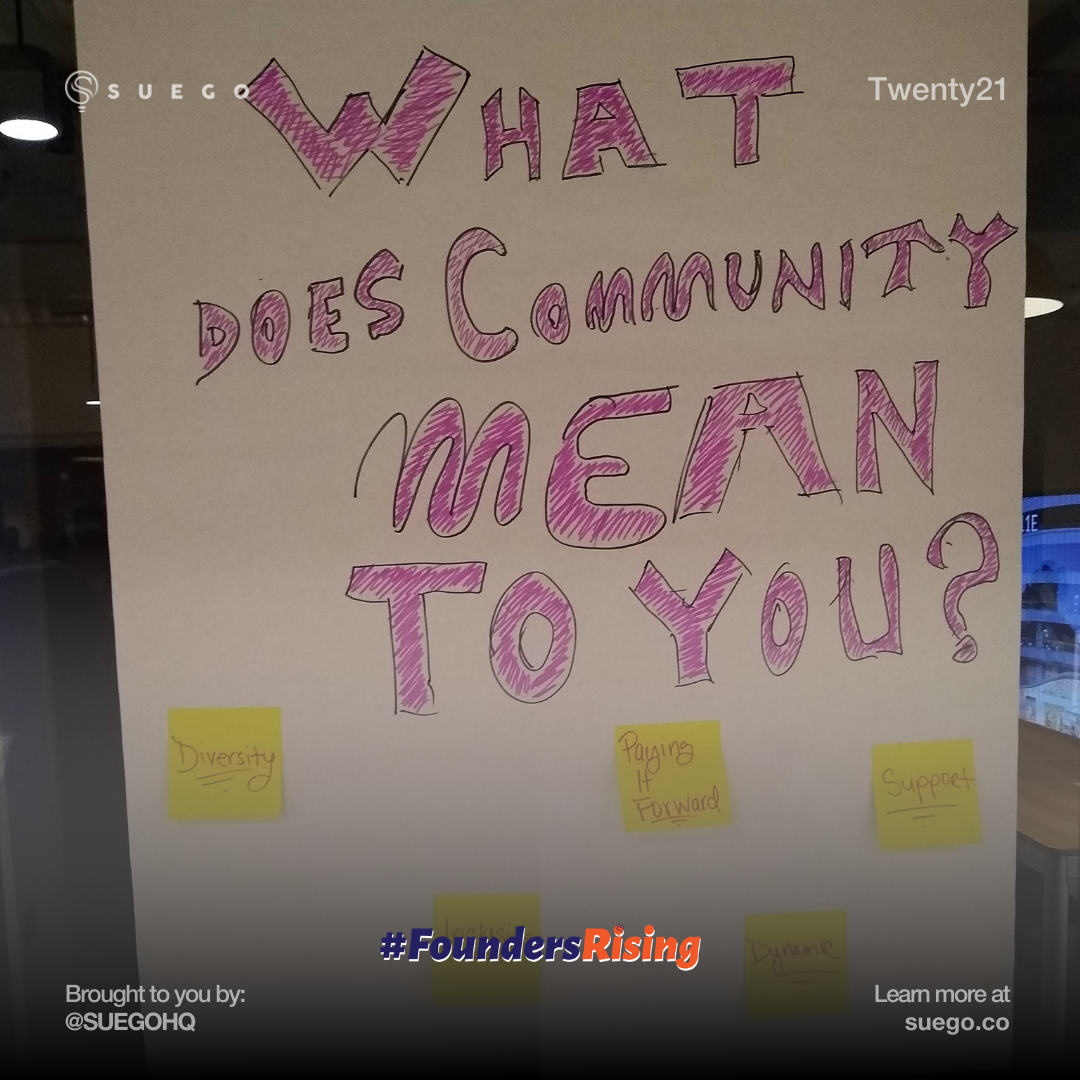 SUEGO
Twenty21
WHAT
DOES COMMUNITY
MEAN
TO YOU?
Diversity
Paying
It
Forward
Support
Dynamic
#FoundersRising
Brought to you by:
@SUEGOHQ
Learn more at
suego.co